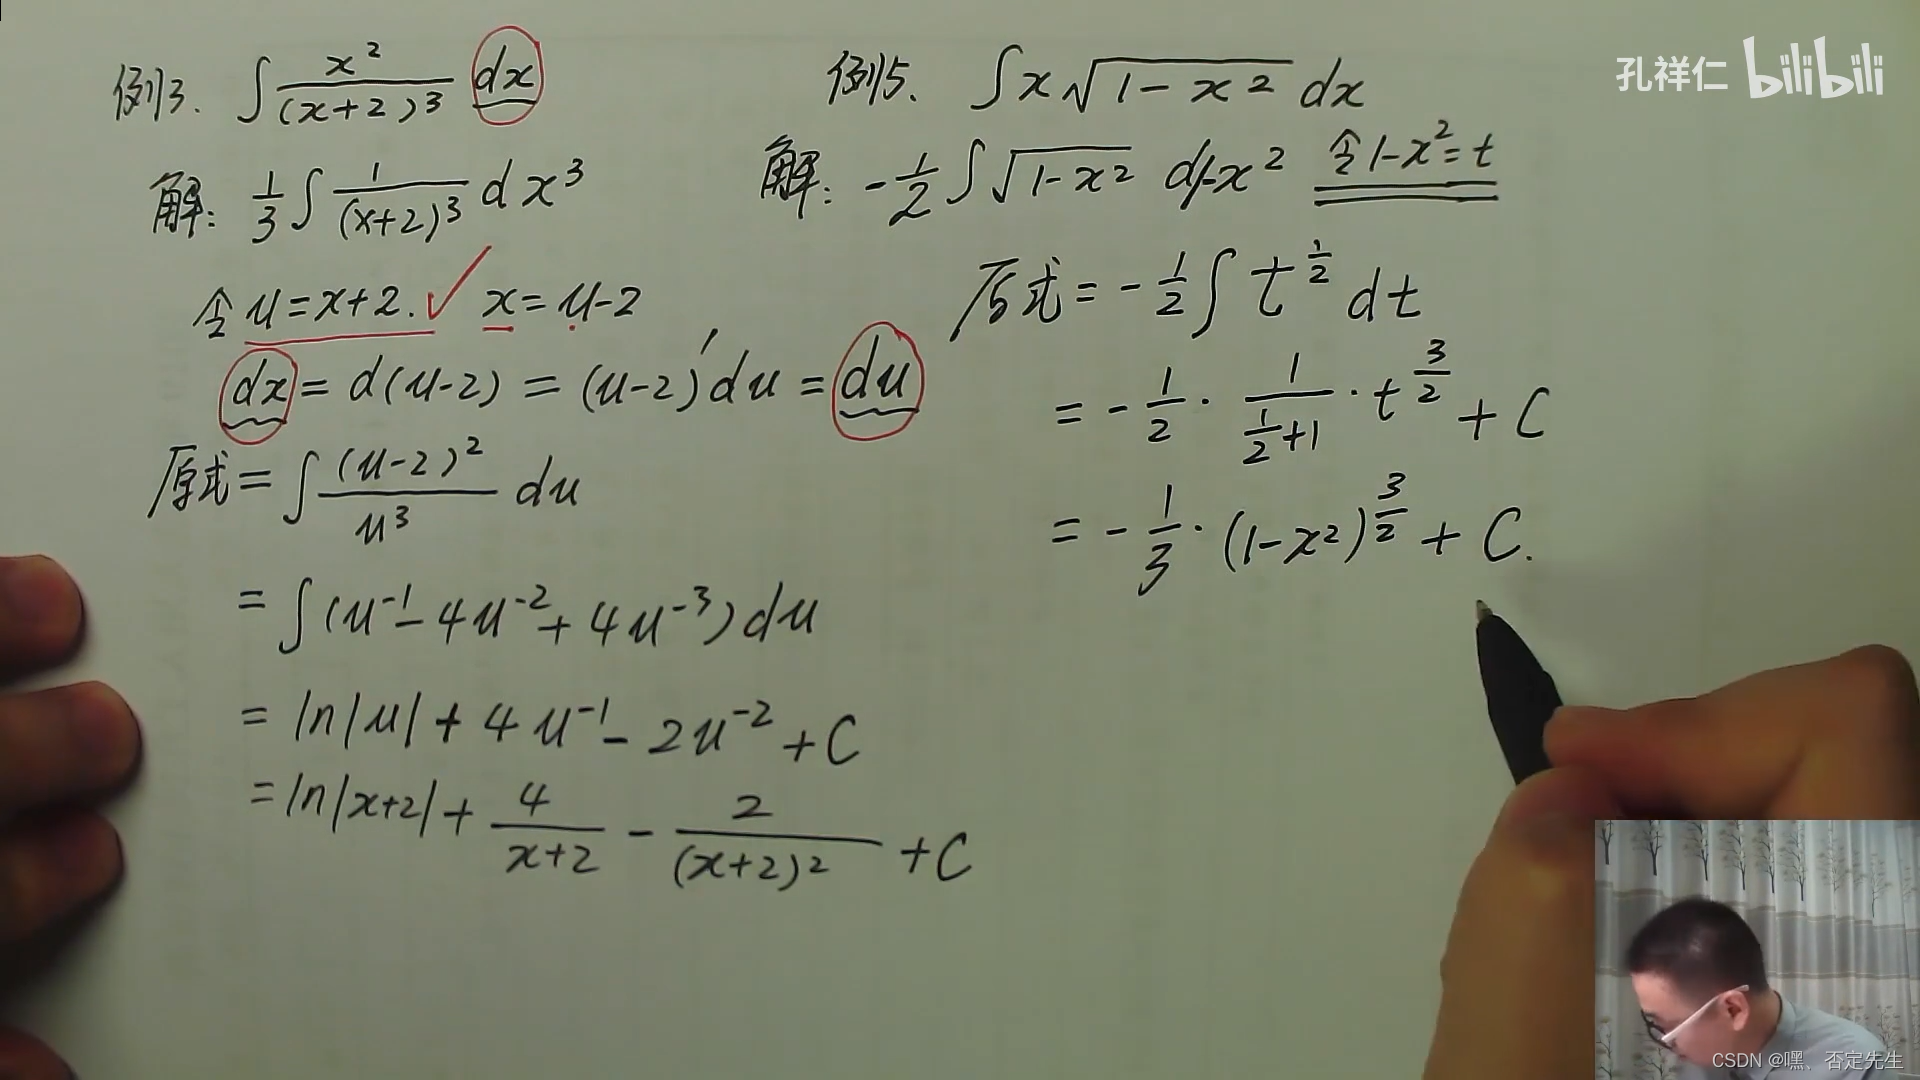 例3. ∫ x²/(x+2)³ dx
解: 1/3 ∫ 1/(x+2)³ dx³
令 u=x+2. ✓ x=u-2
dx = d(u-2) = (u-2)′du = du
原式 = ∫ (u-2)²/u³ du
= ∫(u⁻¹-4u⁻²+4u⁻³)du
= ln|u| + 4u⁻¹ - 2u⁻² + C
= ln|x+2| + 4/(x+2) - 2/(x+2)² + C
例5. ∫x√(1-x²) dx
解: -1/2 ∫√(1-x²) d1-x² 令1-x²=t
原式 = -1/2 ∫ t^(1/2) dt
= -1/2 · 1/(1/2+1) · t^(3/2) + C
= -1/3 · (1-x²)^(3/2) + C.
孔祥仁 bilibili
CSDN @嘿、否定先生